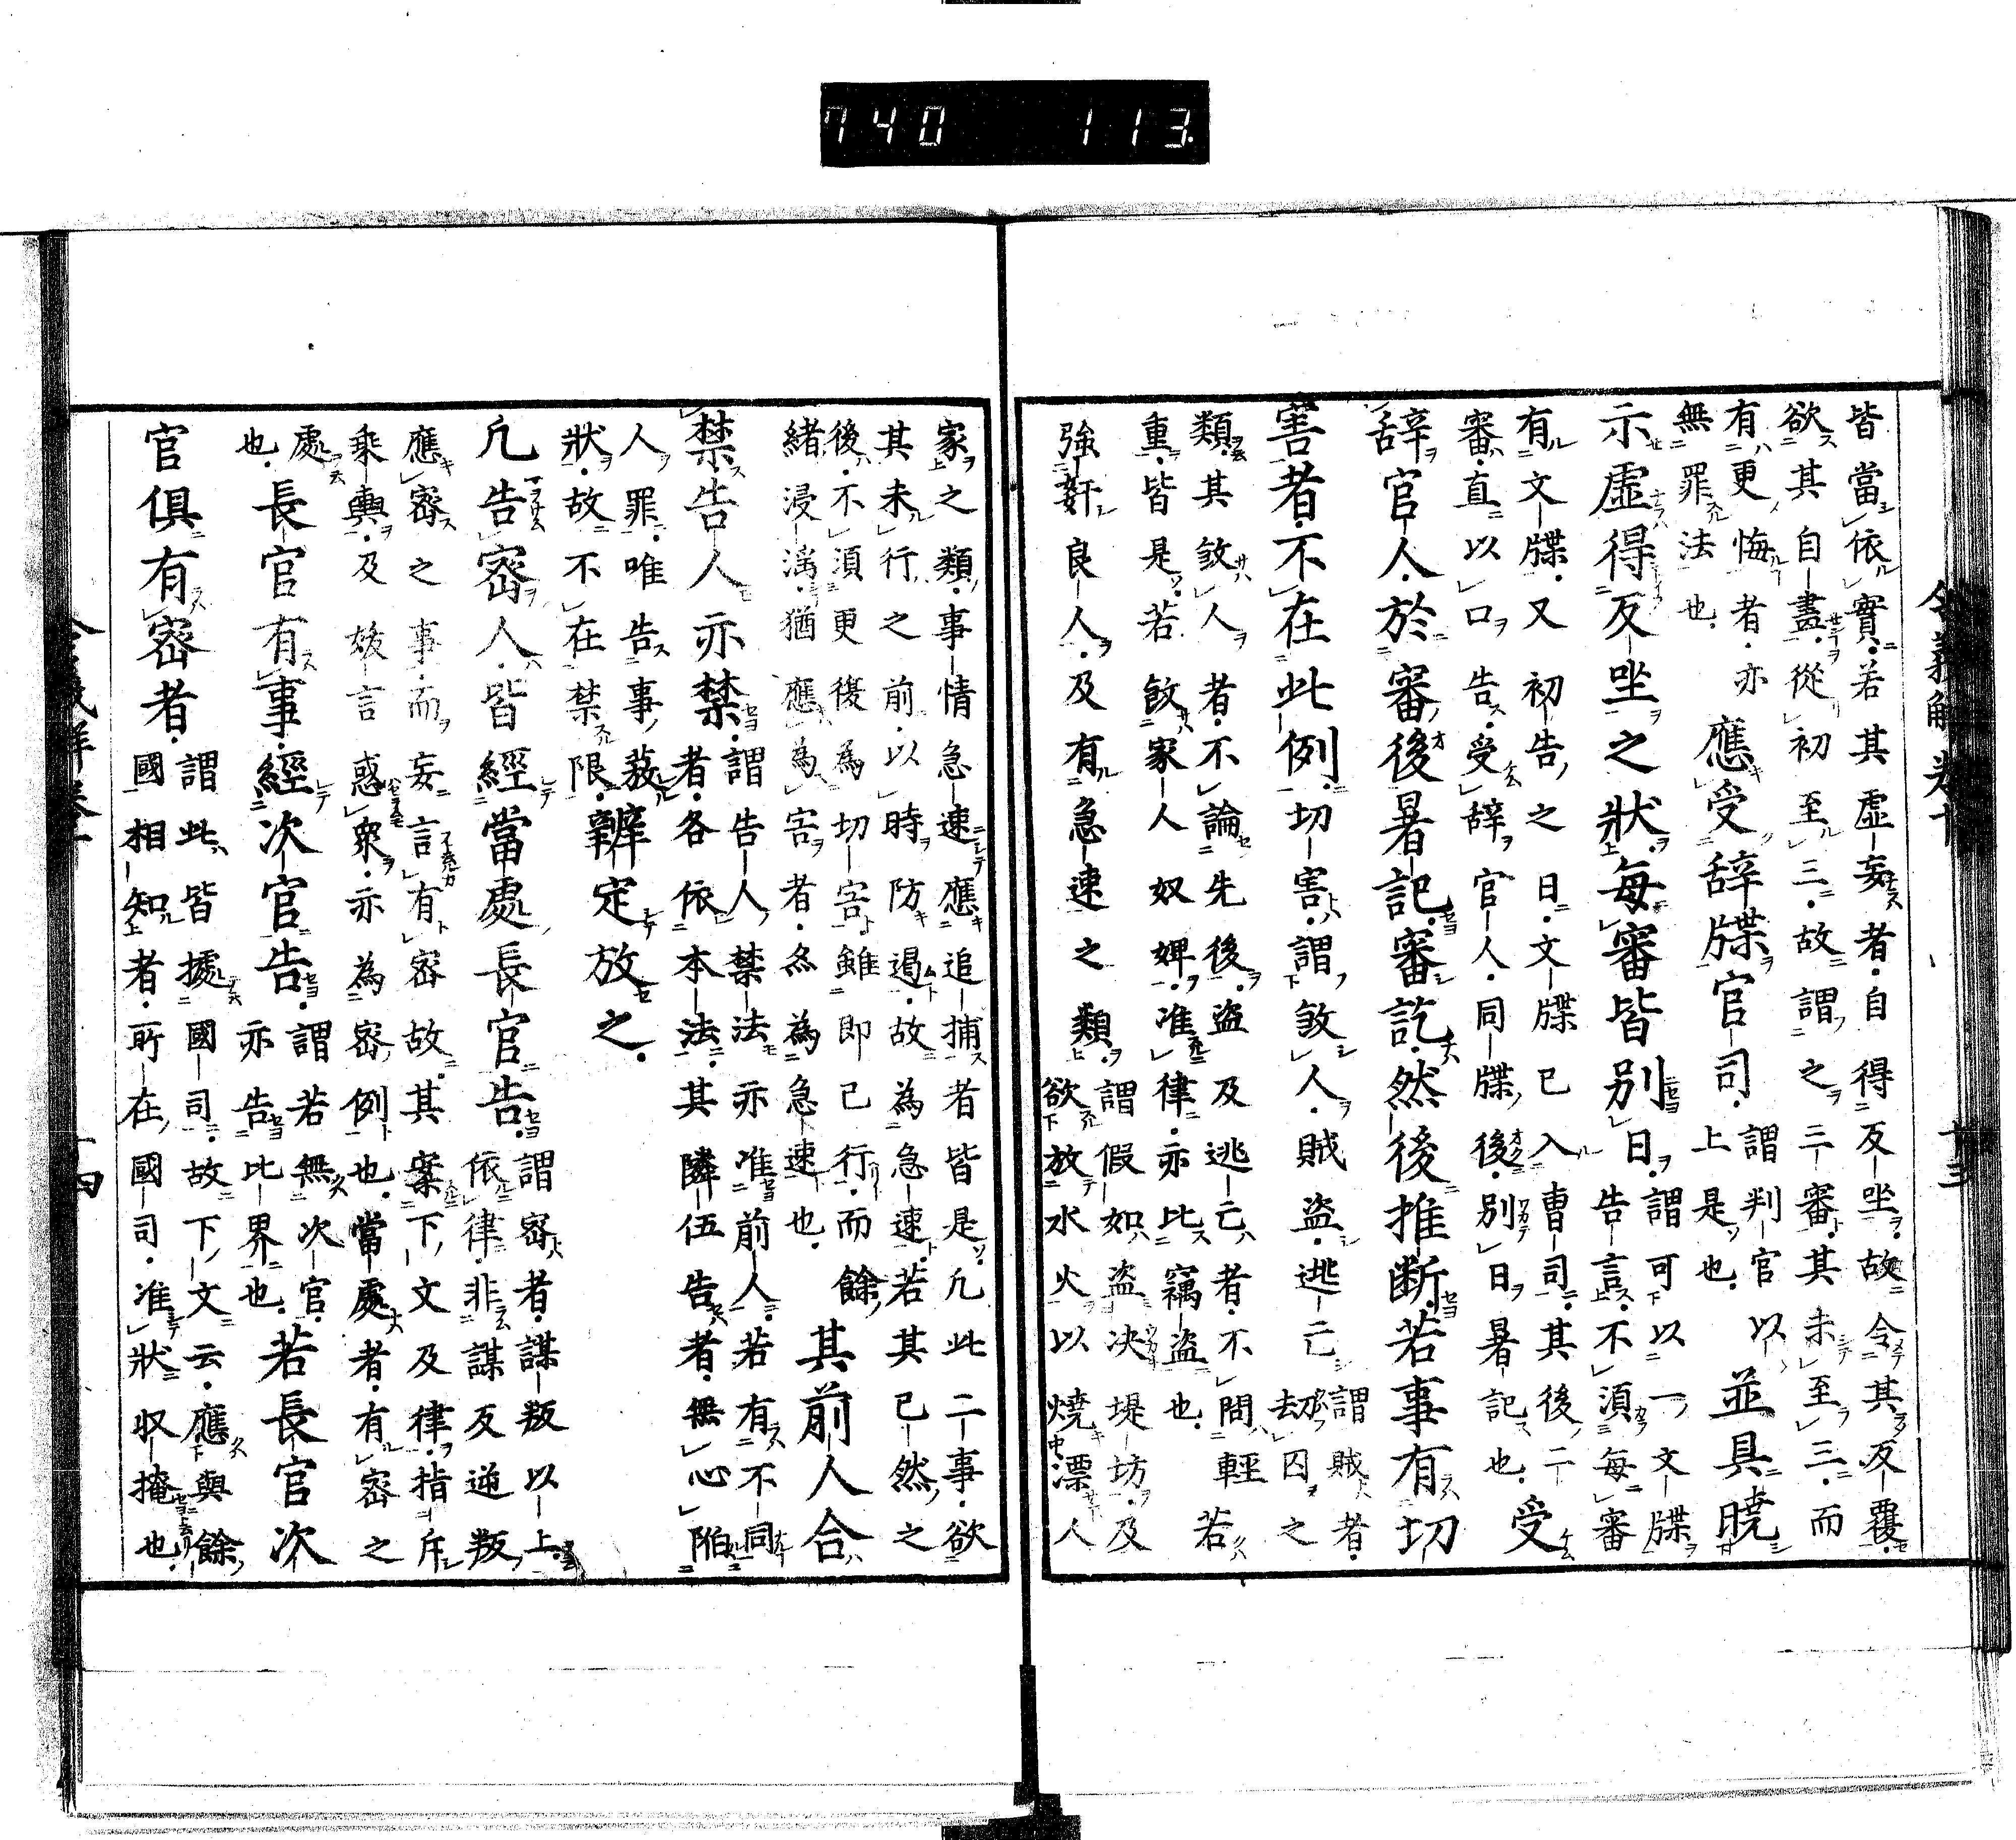 令義解卷十 十三
皆當依實若其虛妄者自得反坐故令其反覆
欲其自盡從初至三故謂之三審其未至三而
有更悔者亦
無罪法也
應受辭牒官司
謂判官以
上是也
並具曉
示虛得反坐之狀每審皆別日
謂可以一文牒
告言不須每審
有文牒又初告之日文牒已入曹司其後二
審直以口告受辭官人同牒後別日署記也
受
辭官人於審後署記審訖然後推斷若事有切
害者不在此例
切害謂殺人賊盜逃亡
謂賊者
劫囚之
類其殺人者不論先後盜及逃亡者不問輕
重皆是若殺家人奴婢准律亦比竊盜也
若
強姧良人及有急速之類
謂假如盜決堤坊及
欲放水火以燒漂人
家之類事情急速應追捕者皆是凡此二事欲
其未行之前以時防遏故為急速若其已然之
後不須更復為切害雖即已行而餘
緒浸淫猶應為害者尒為急速也
其前人合
禁告人亦禁
謂告人禁法亦准前人若有不同
者各依本法其隣伍告者無心陷
人罪唯告事發
狀故不在禁限
辨定放之
凡告密人皆經當處長官告
謂密者謀叛以上
依律非謀反逆叛
應密之事而妄言有密故其案下文及律指斥
乘輿及妖言惑衆亦為密例也當處者有密之
處
也
長官有事經次官告
謂若無次官
亦告比界也
若長官次
官俱有密者
謂此皆據國司故下文云應與餘
國相知者所在國司准狀収掩也
十四